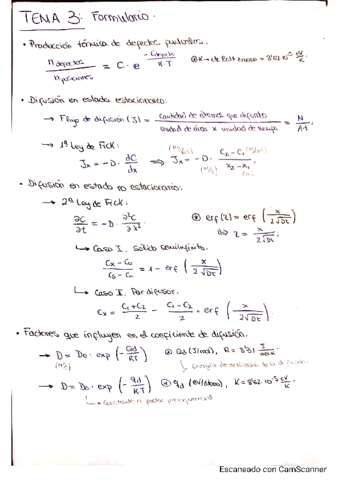 TEMA 3: Formulario.
• Producción térmica de defectos puntuales.
n defectos / n posiciones = C · e^(-Edefecto / K·T) ⊛ K → cte Boltzmann = 8'62·10⁻⁵ eV/K
• Difusión en estado estacionario:
→ Flujo de difusión (J) = cantidad de átomos que difunden / unidad de área x unidad de tiempo = N / A·t;
→ 1ª Ley de Fick:
Jx = -D · dC/dx ⟹ Jx = -D · C₂ - C₁ / x₂ - x₁;
• Difusión en estado no estacionario:
→ 2ª Ley de Fick:
∂C/∂t = -D · ∂²C/∂x² ⊛ erf(z) = erf(x / 2√Dt)
↳ z = x / 2√Dt;
↳ Caso I. Sólido semiinfinito.
Cx - C₀ / Cs - C₀ = 1 - erf(x / 2√Dt)
↳ Caso I. Par difusor.
Cx = C₁+C₂ / 2 - C₁-C₂ / 2 · erf(x / 2√Dt)
• Factores que influyen en el coeficiente de difusión.
→ D = D₀ · exp(- Qd / RT) ⊛ Qd (J/mol), R = 8'31 J/mol·K
↳ Energía de activación de la difusión
→ D = D₀ · exp(- qd / K·T) ⊛ qd (eV/átomo), K = 8'62·10⁻⁵ eV/K
↳ Constante o factor preexponencial
Escaneado con CamScanner